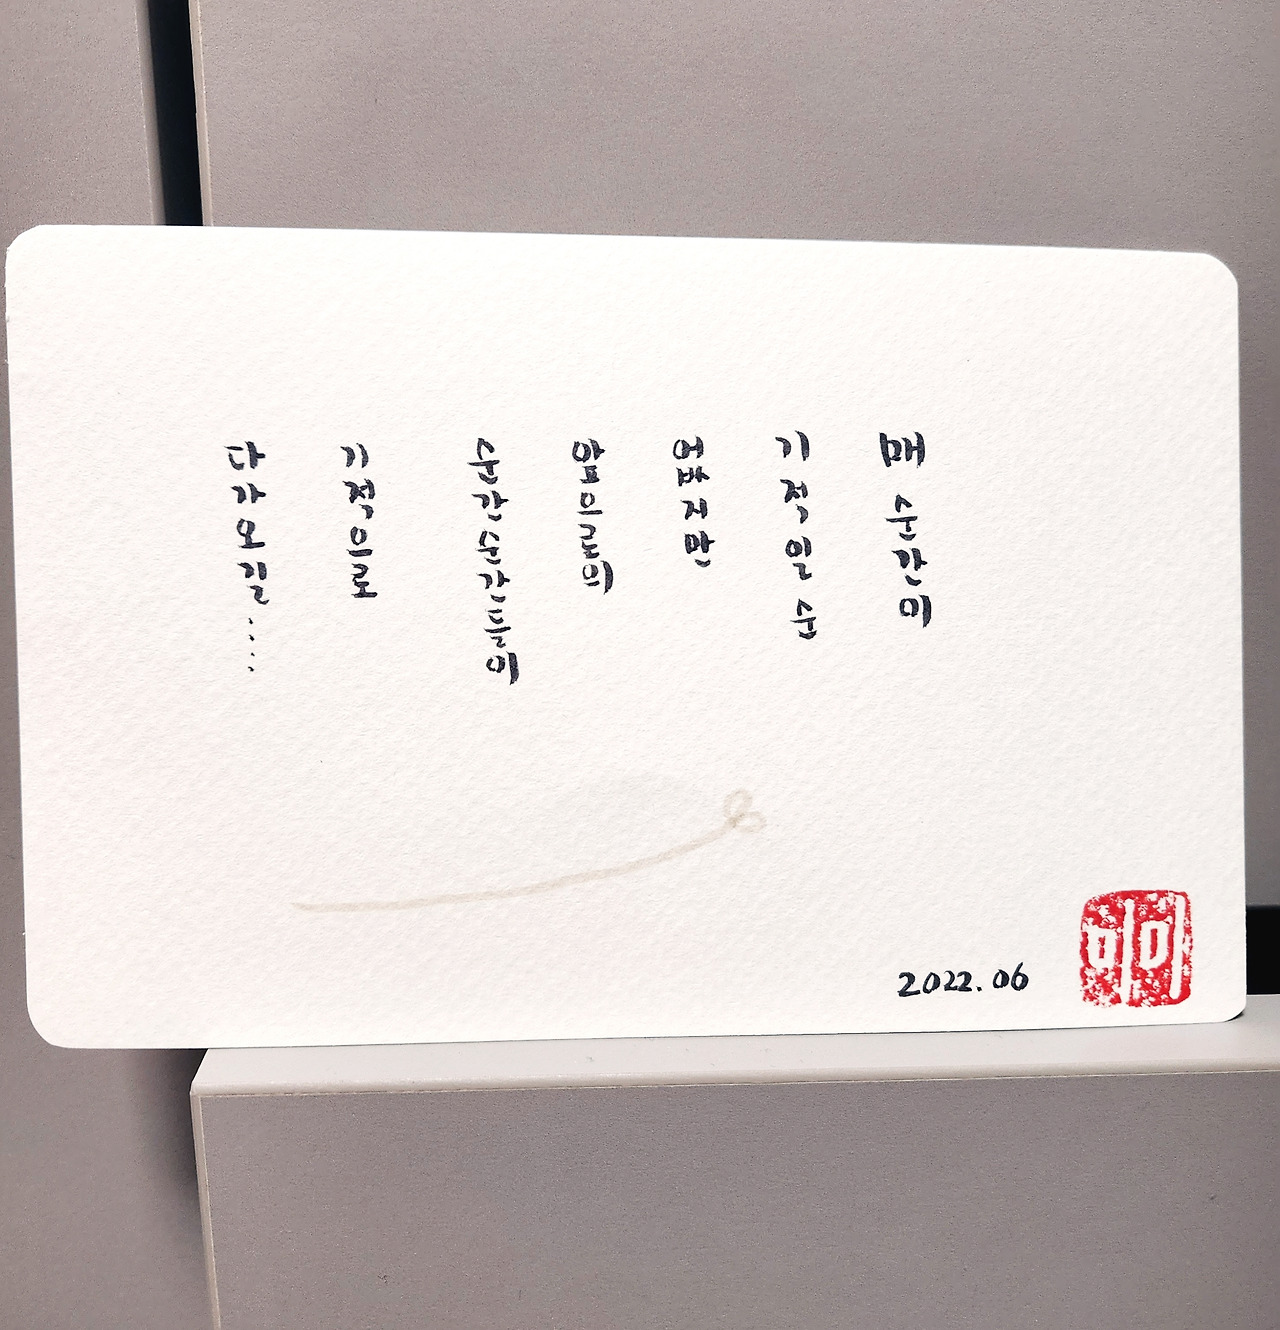 매 순간이
기적일 순
없지만
앞으로의
순간순간들이
기적으로
다가오길.....
2022.06